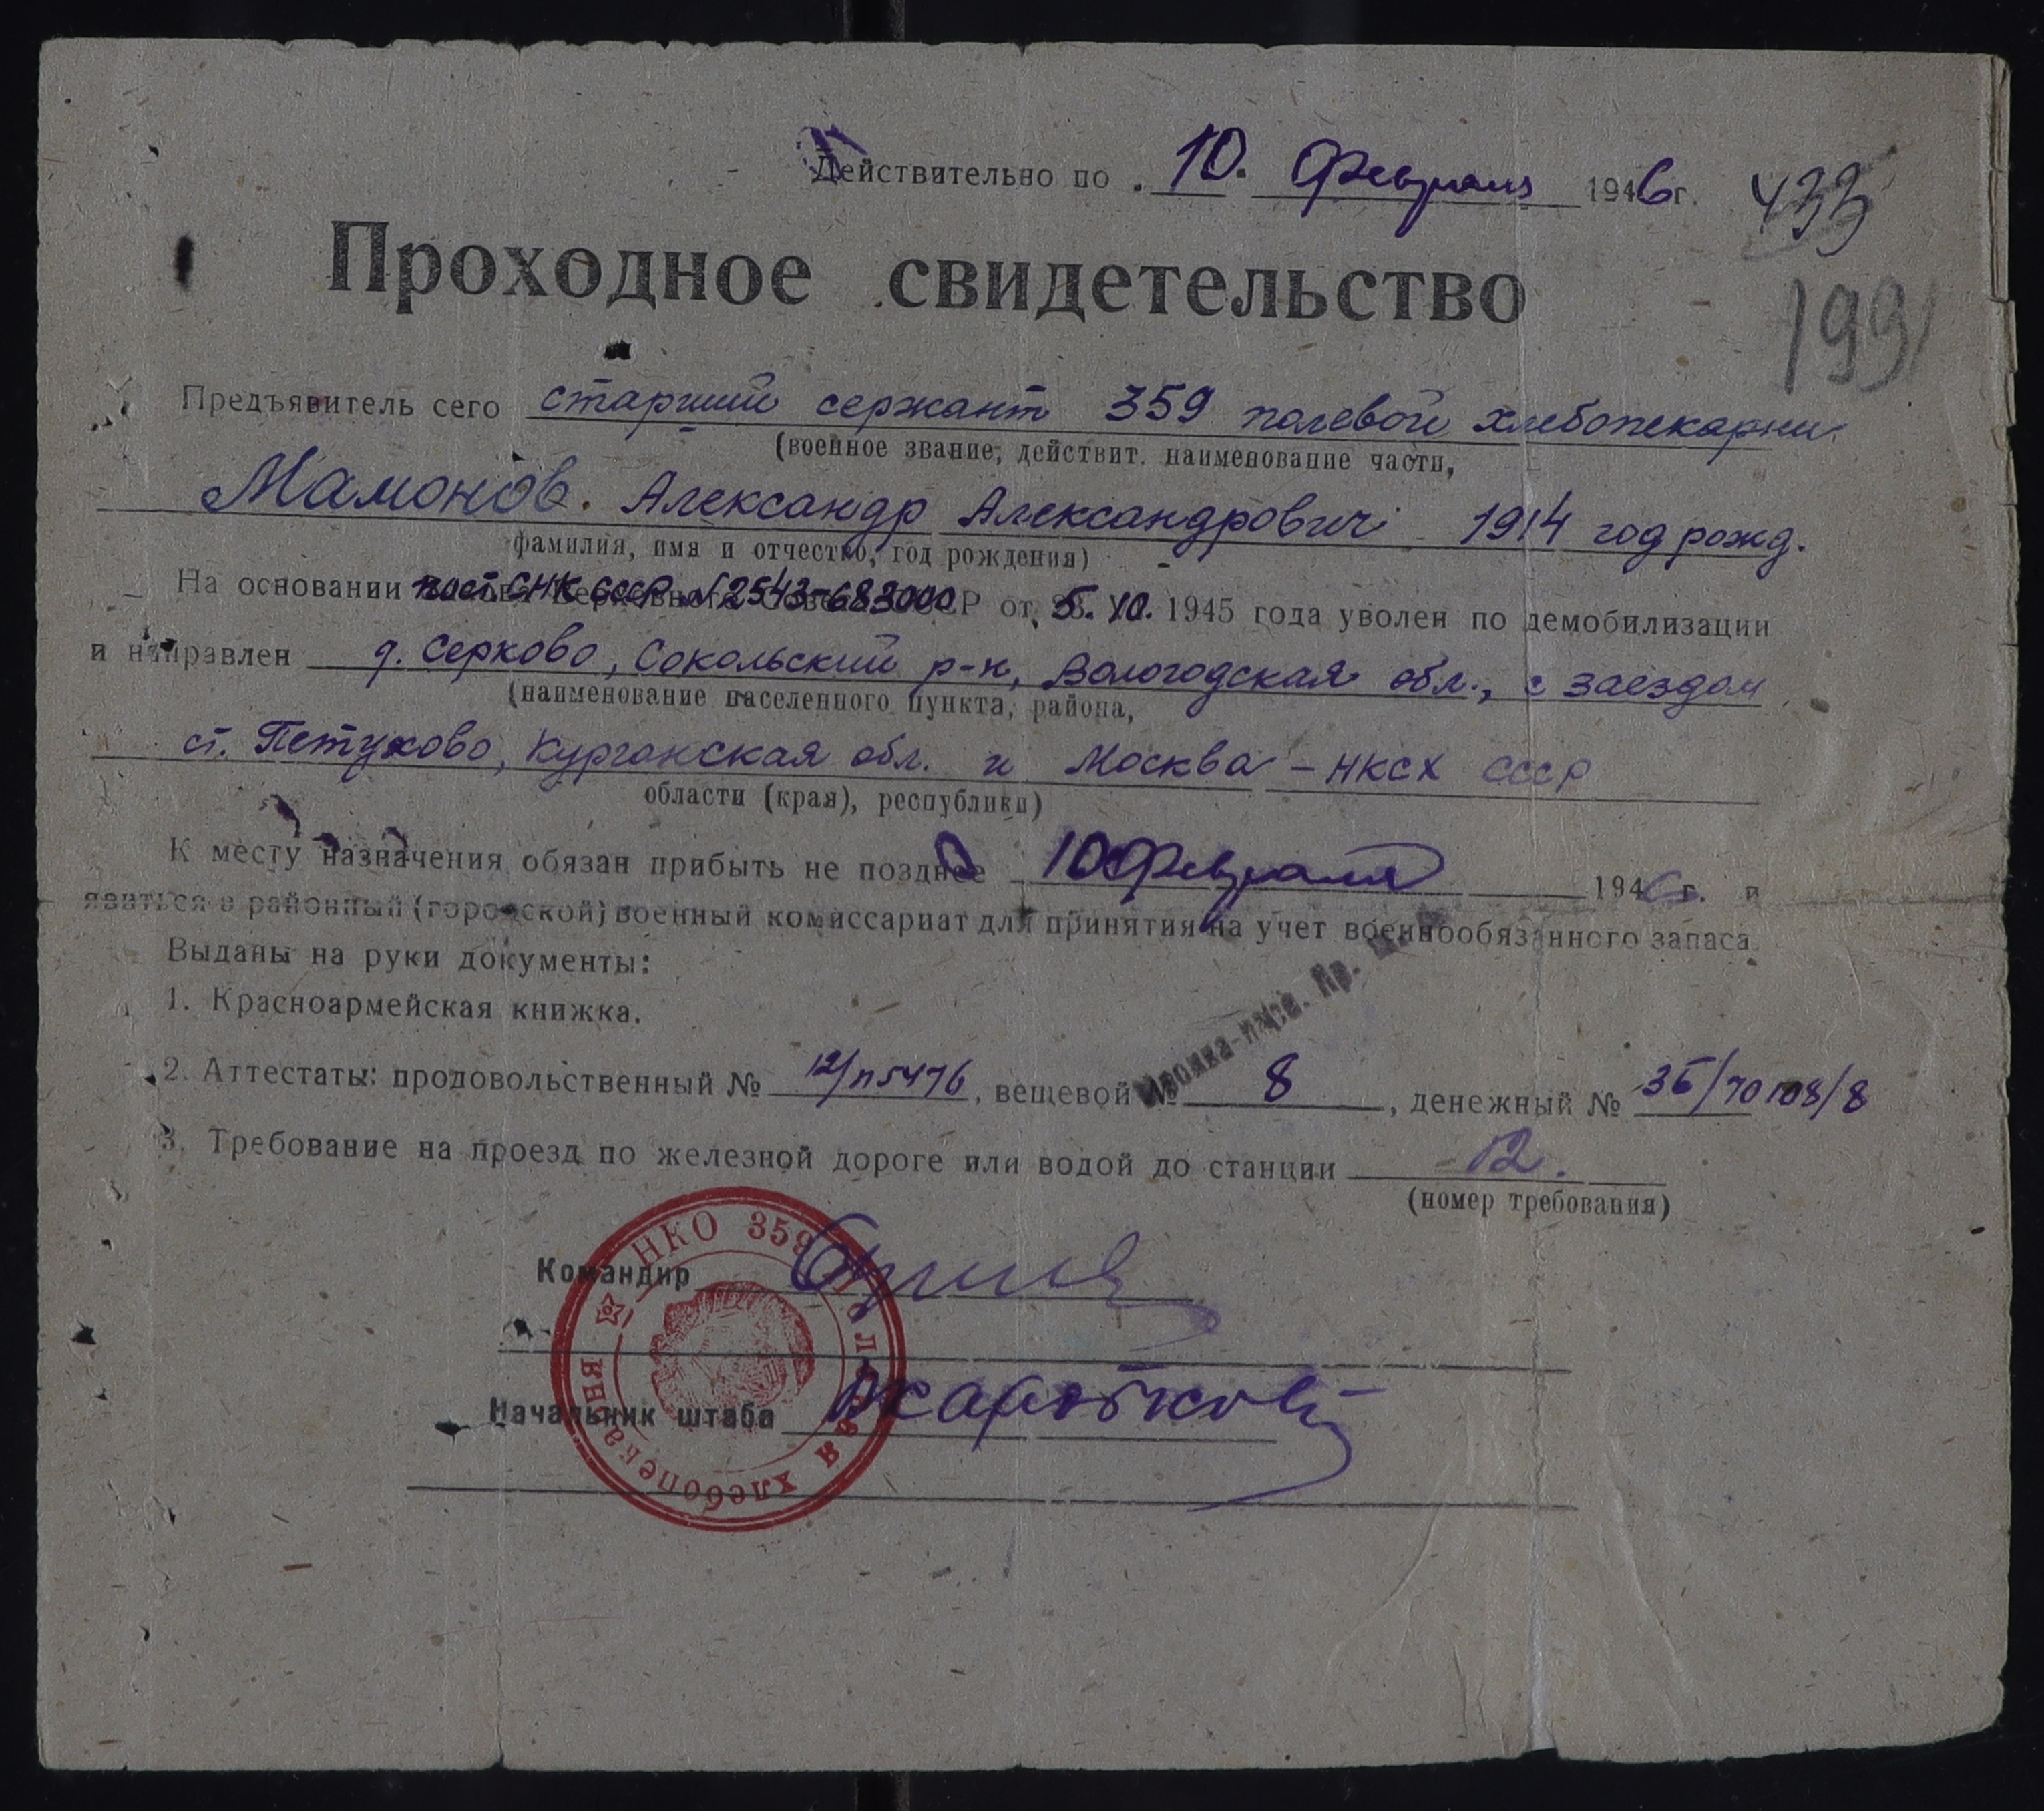 Действительно по 10. февраля 1946 г. 433
Проходное свидетельство
199
Предъявитель сего старший сержант 359 полевой хлебопекарни
(военное звание, действит. наименование части,
Мамонов. Александр Александрович 1914 год рожд.
фамилия, имя и отчество, год рождения)
На основании пост. СНК СССР № 2543-683 от 5. 10. 1945 года уволен по демобилизации
и направлен д. Серково, Сокольский р-н, Вологодская обл., с заездом
(наименование населенного пункта, района,
ст. Петухово, Курганская обл. и Москва - НКСХ СССР
области (края), республики)
К месту назначения обязан прибыть не позднее 10 февраля 1946 г. и
явиться в районный (городской) военный комиссариат для принятия на учет военнообязанного запаса
Выданы на руки документы:
1. Красноармейская книжка.
2. Аттестаты: продовольственный № 12/п5476, вещевой № 8, денежный №
3. Требование на проезд по железной дороге или водой до станции 12.
(номер требования)
НКО 359 полевая хлебопекарня
Командир
Начальник штаба